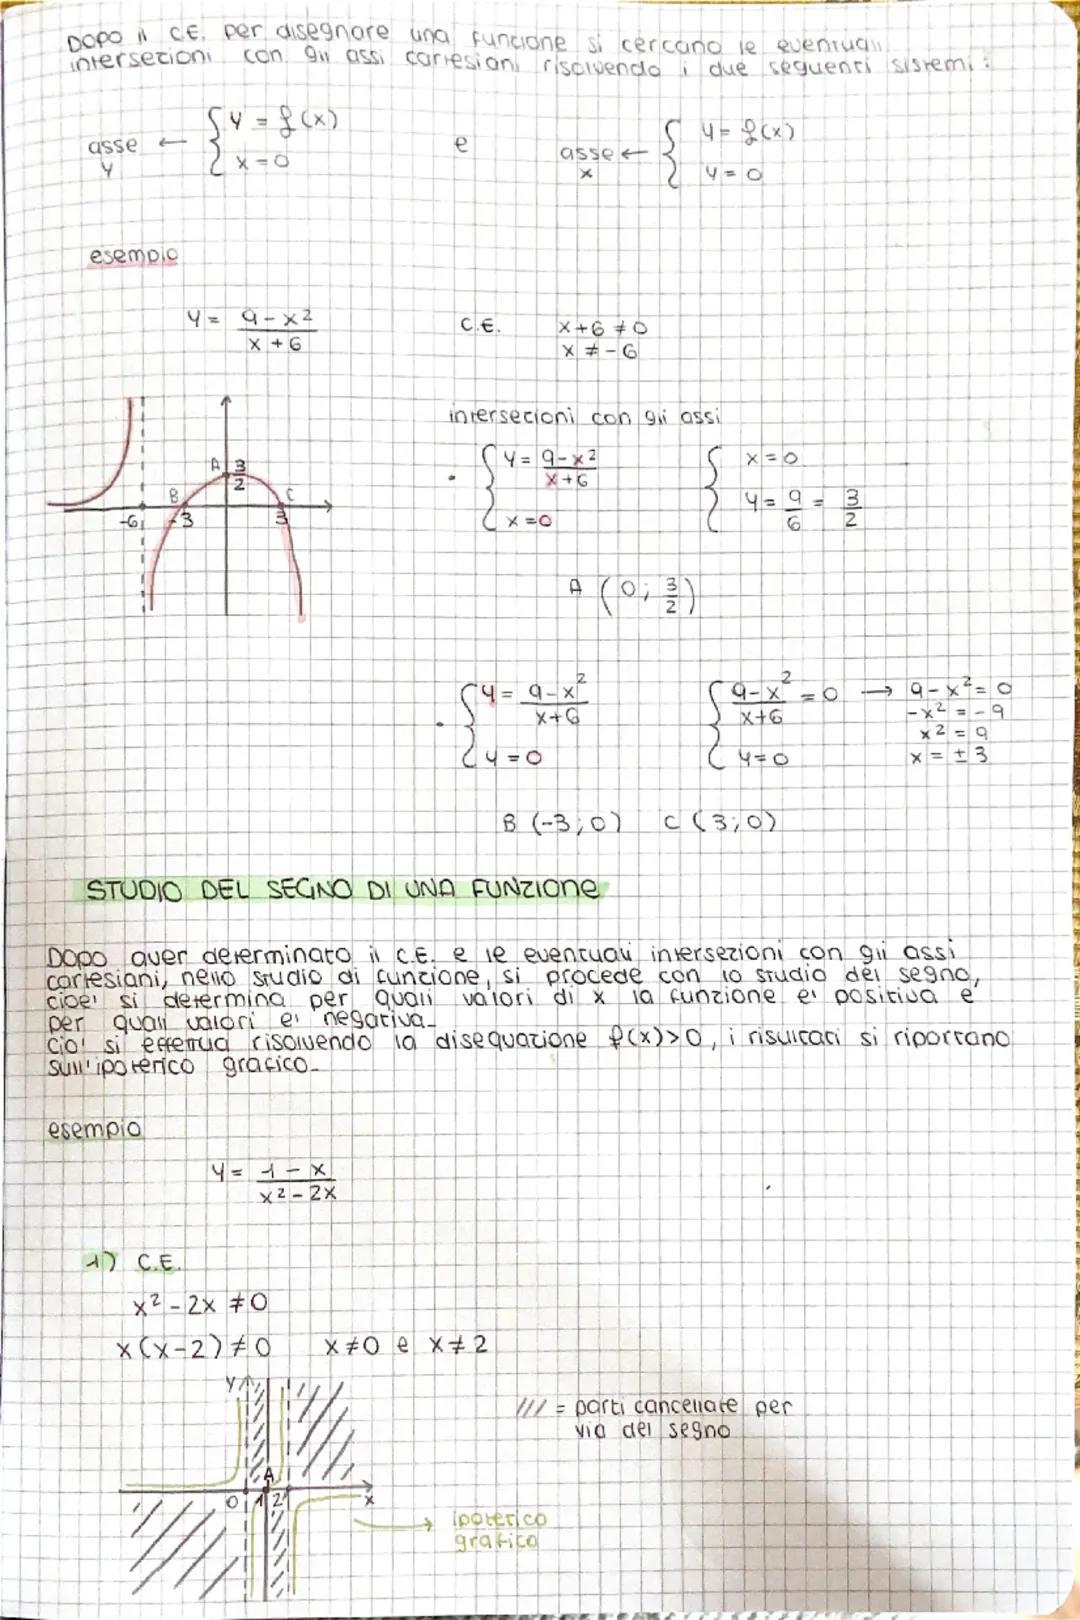 DOPO il C.E. per disegnare una funzione si cercano le eventuali
intersezioni con gli assi cartesiani risolvendo i due seguenti sistemi:
asse y ← { y = f(x) x = 0 e asse x ← { y = f(x) y = 0
esempio
y = 9-x² / x+6 C.E. x+6 ≠ 0
x ≠ -6
intersezioni con gli assi
• { y = 9-x² / x+6 x = 0 { x = 0 y = 9/6 = 3/2
A 3/2
B C
-6 -3 3
A (0; 3/2)
• { y = 9-x² / x+6 y = 0 { 9-x² / x+6 = 0 y = 0 → 9-x² = 0
-x² = -9
x² = 9
x = ±3
B (-3;0) C (3;0)
STUDIO DEL SEGNO DI UNA FUNZIONE
Dopo aver determinato il C.E. e le eventuali intersezioni con gli assi
cartesiani, nello studio di funzione, si procede con lo studio del segno,
cioe' si determina per quali valori di x la funzione e' positiva e
per quali valori e' negativa.
Cio' si effettua risolvendo la disequazione f(x)>0, i risultati si riportano
sull'ipotetico grafico.
esempio
y = 1-x / x²-2x
1) C.E.
x²-2x ≠ 0
x(x-2) ≠ 0 x≠0 e x≠2
y
/// = parti cancellate per
via del segno
A
0 1 2 x
→ ipotetico
grafico